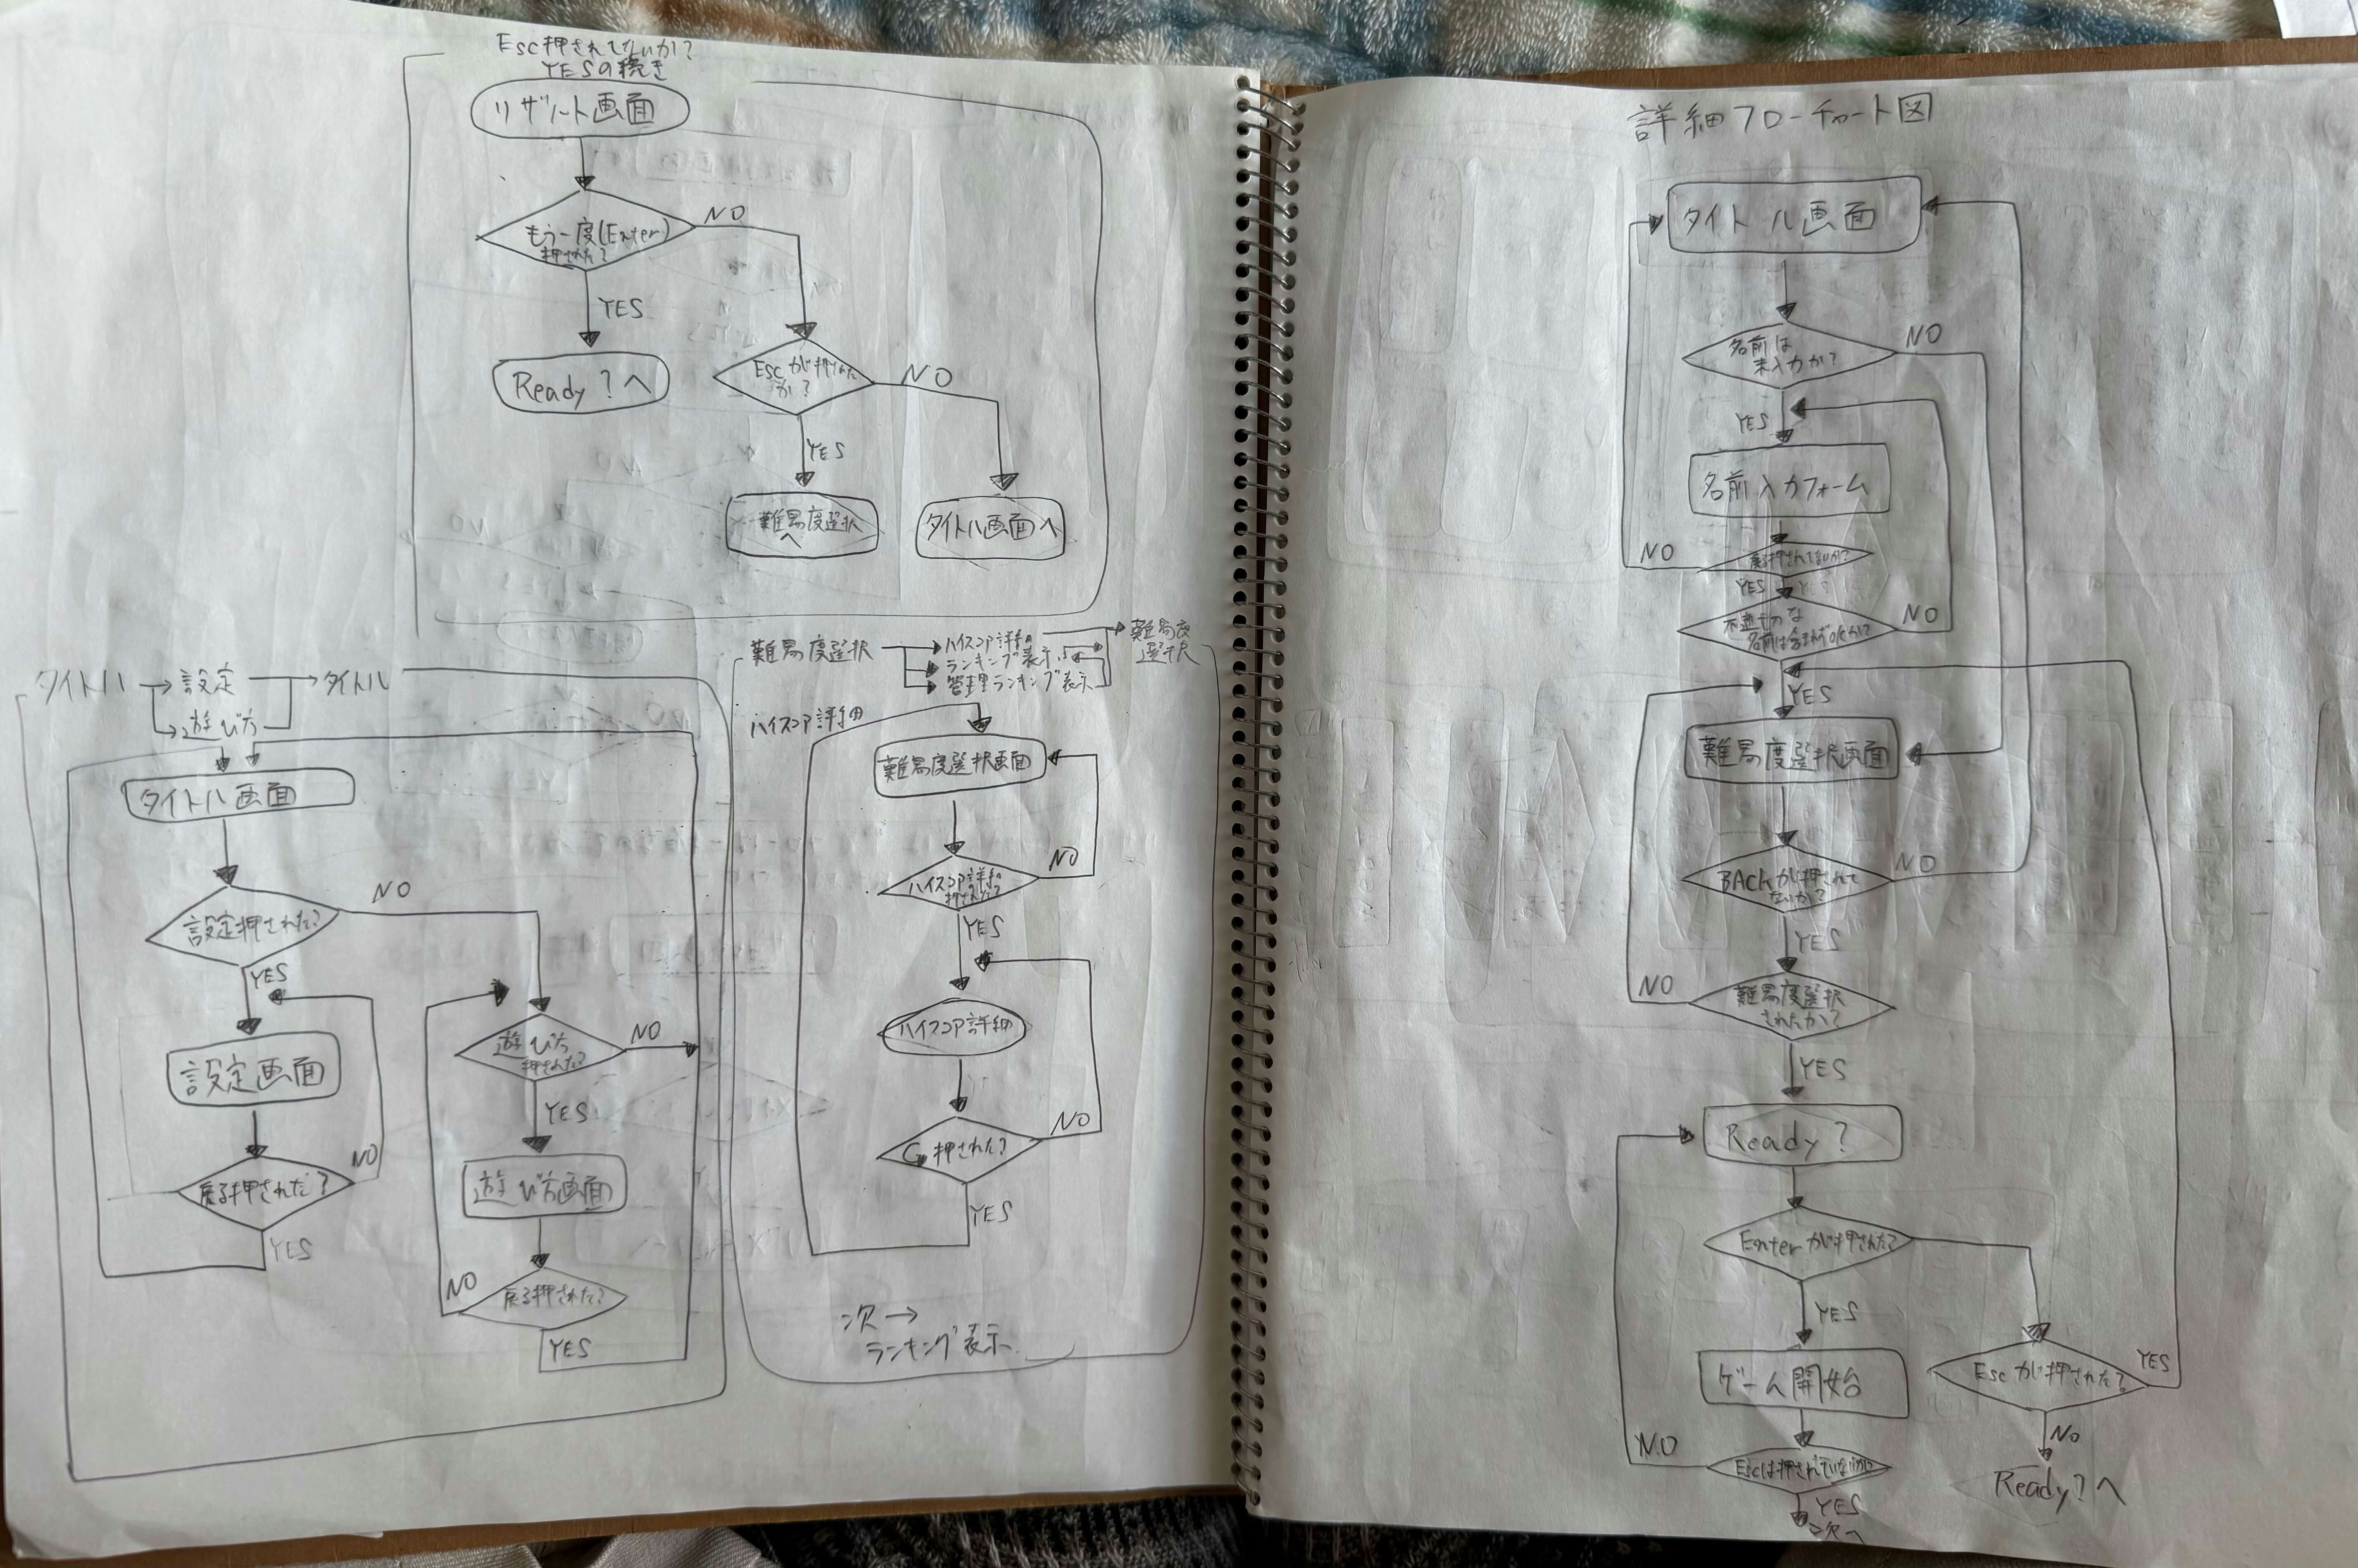 Esc押されてないか?
YESの続き
リザルト画面
もう一度(Enter)
押された?
NO
YES
Ready?へ
Escが押された
か?
NO
YES
難易度選択
へ
タイトル画面へ
タイトル
設定
タイトル
遊び方
タイトル画面
設定押された?
NO
YES
設定画面
戻る押された?
NO
YES
遊び方
押された?
NO
YES
遊び方画面
戻る押された?
NO
YES
難易度選択
ハイスコア詳細
ランキング表示
管理ランキング表示
難易度
選択
ハイスコア詳細
難易度選択画面
ハイスコア詳細
押された?
NO
YES
ハイスコア詳細
G押された?
NO
YES
次→
ランキング表示
詳細フローチャート図
タイトル画面
名前は
未入力か?
NO
YES
名前入力フォーム
戻る押されてないか?
NO
YES
不適切な
名前は含まれずOKか?
NO
YES
難易度選択画面
BACKが押されて
ないか?
NO
YES
難易度選択
されたか?
NO
YES
Ready?
Enterが押された?
YES
ゲーム開始
Escは押されていないか?
NO
YES
次へ
Escが押された?
YES
NO
Ready?へ